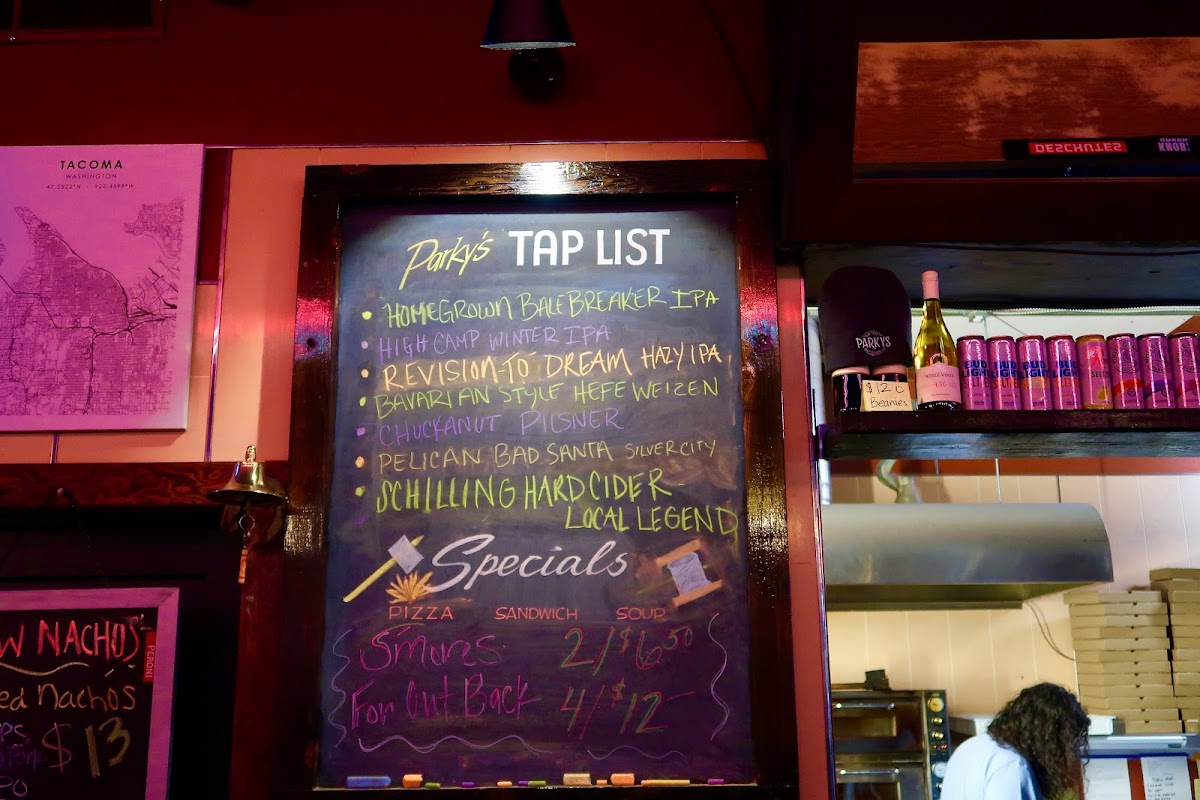 TACOMA
WASHINGTON
47.2522°N - 122.4598°W
Parky's TAP LIST
• HOMEGROWN BALEBREAKER IPA
• HIGH CAMP WINTER IPA
• REVISION-TO DREAM HAZY IPA
• BAVARIAN STYLE HEFEWEIZEN
• CHUCKANUT PILSNER
• PELICAN BAD SANTA SILVERCITY
• SCHILLING HARD CIDER
LOCAL LEGEND
Specials
PIZZA SANDWICH SOUP
S'mores 2/$6.50
For Out Back 4/$12-
W NACHOS
ed Nachos
$13
PERONI
DESCHUTES
KNOB
PARKYS
$12
Beanies
BUD LIGHT
BUD LIGHT
BUD LIGHT
BUD LIGHT